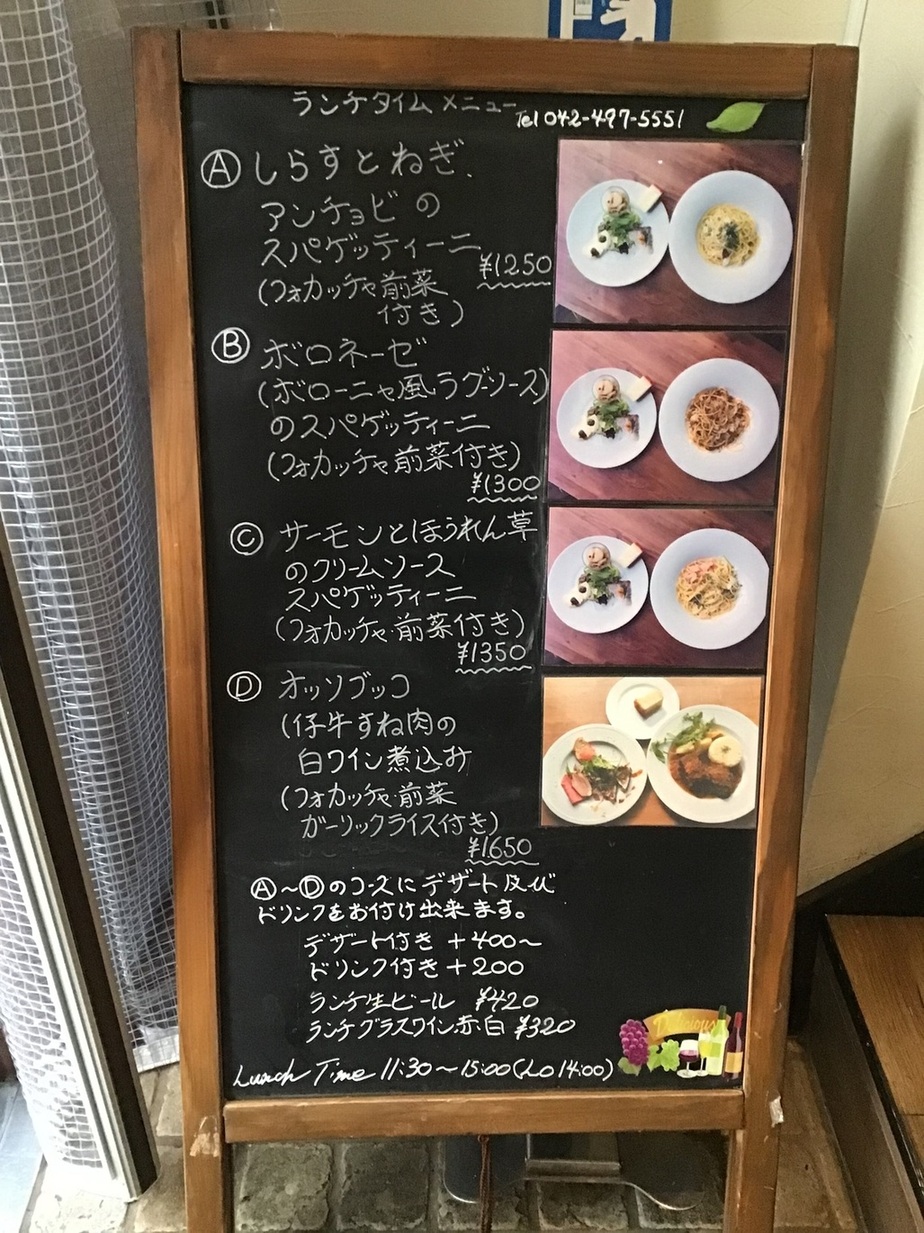 ランチタイム メニュー
Tel 042-497-5551
Ⓐ しらすとねぎ、
アンチョビの
スパゲッティーニ
¥1250
(フォカッチャ前菜
付き)
Ⓑ ボロネーゼ
(ボローニャ風ラグーソース)
のスパゲッティーニ
(フォカッチャ前菜付き)
¥1300
Ⓒ サーモンとほうれん草
のクリームソース
スパゲッティーニ
(フォカッチャ・前菜付き)
¥1350
Ⓓ オッソブッコ
(仔牛すね肉の
白ワイン煮込み
(フォカッチャ・前菜
ガーリックライス付き)
¥1650
Ⓐ~Ⓓのコースにデザート及び
ドリンクをお付け出来ます。
デザート付き +400~
ドリンク付き +200
ランチ生ビール ¥420
ランチグラスワイン赤・白 ¥320
Delicious
Lunch Time 11:30~15:00(Lo 14:00)